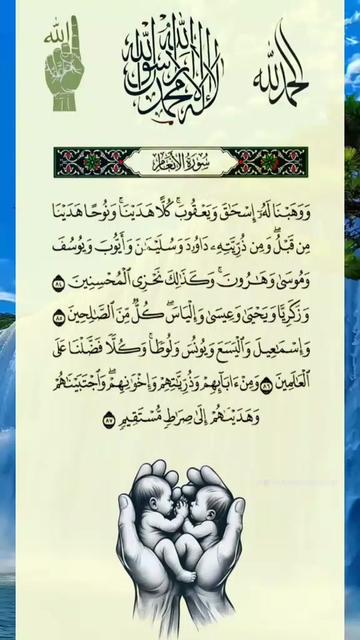 الله
لا إله إلا الله محمد رسول الله
الحمد لله
سُورَةُ الأَنْعَامِ
وَوَهَبْنَا لَهُۥٓ إِسْحَٰقَ وَيَعْقُوبَ ۚ كُلًّا هَدَيْنَا ۚ وَنُوحًا هَدَيْنَا
مِن قَبْلُ ۖ وَمِن ذُرِّيَّتِهِۦ دَاوُۥدَ وَسُلَيْمَٰنَ وَأَيُّوبَ وَيُوسُفَ
وَمُوسَىٰ وَهَٰرُونَ ۚ وَكَذَٰلِكَ نَجْزِى ٱلْمُحْسِنِينَ ٨٤
وَزَكَرِيَّا وَيَحْيَىٰ وَعِيسَىٰ وَإِلْيَاسَ ۖ كُلٌّ مِّنَ ٱلصَّٰلِحِينَ ٨٥
وَإِسْمَٰعِيلَ وَٱلْيَسَعَ وَيُونُسَ وَلُوطًا ۚ وَكُلًّا فَضَّلْنَا عَلَى
ٱلْعَٰلَمِينَ ٨٦ وَمِنْ ءَابَآئِهِمْ وَذُرِّيَّٰتِهِمْ وَإِخْوَٰنِهِمْ ۖ وَٱجْتَبَيْنَٰهُمْ
وَهَدَيْنَٰهُمْ إِلَىٰ صِرَٰطٍ مُّسْتَقِيمٍ ٨٧